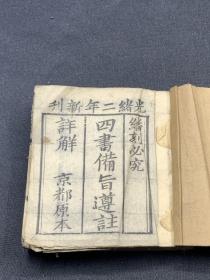 光緒二年新刊
翻刻必究
四書備旨遵註
詳解
京都原本